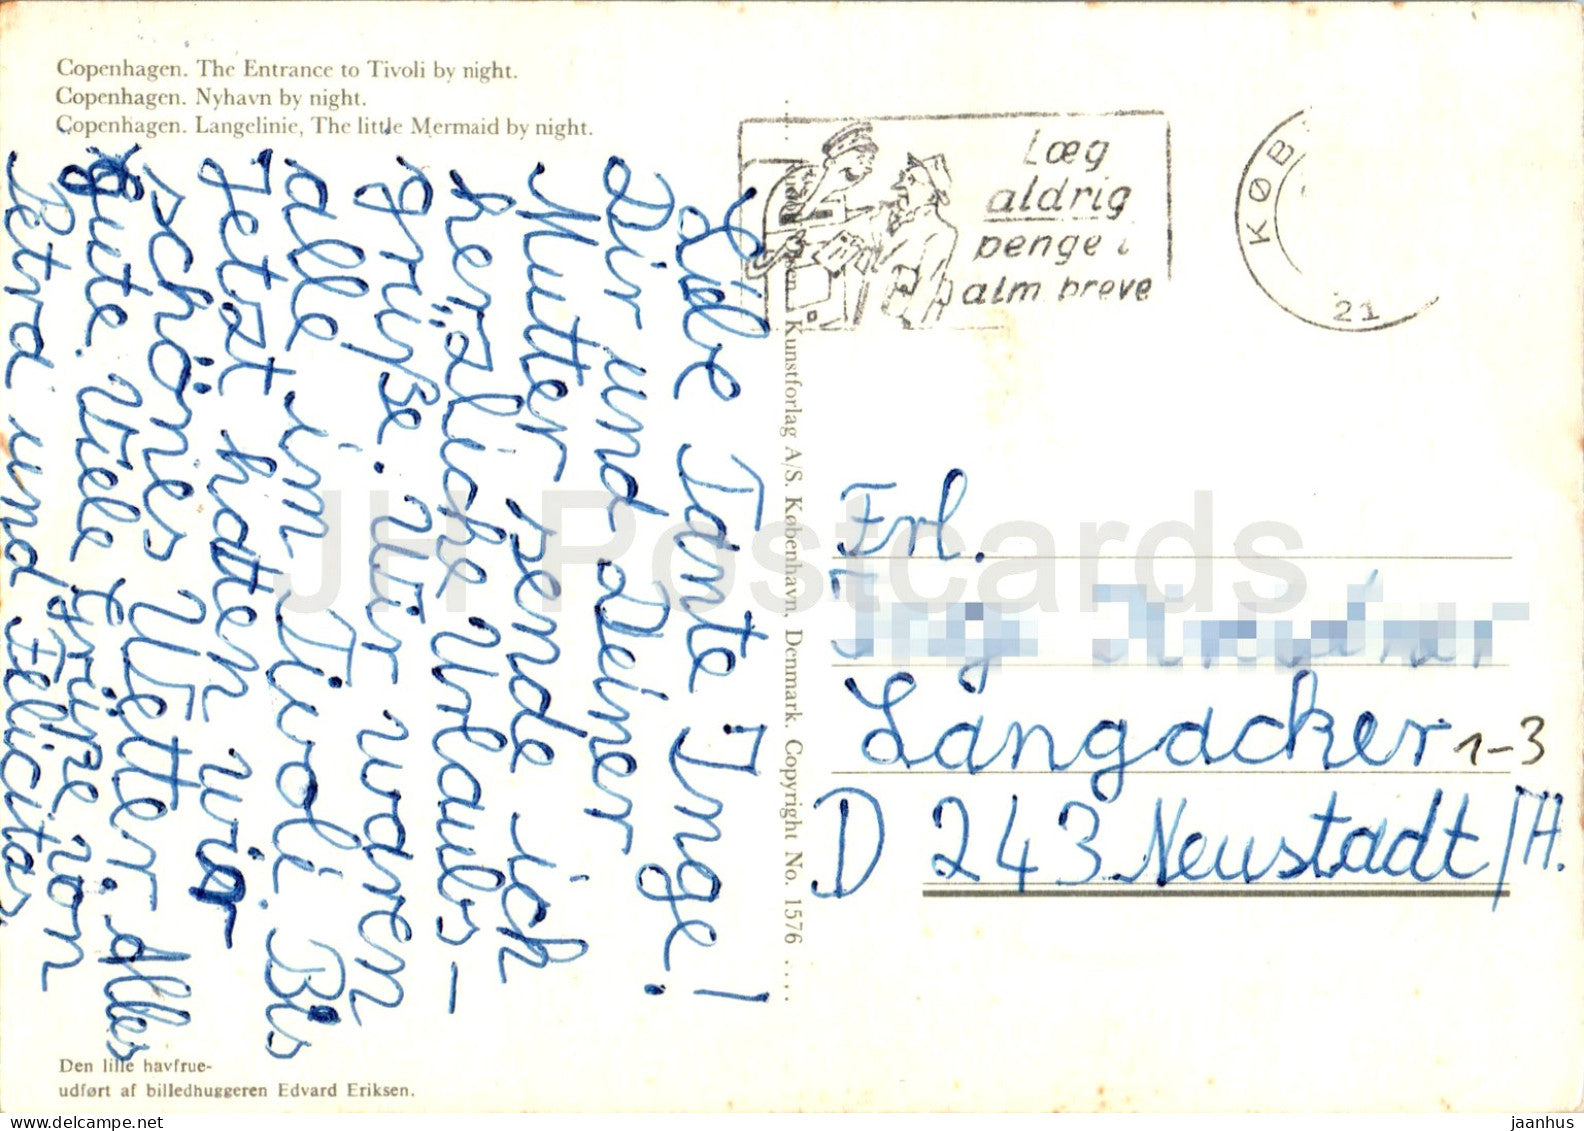 Copenhagen. The Entrance to Tivoli by night.
Copenhagen. Nyhavn by night.
Copenhagen. Langelinie, The little Mermaid by night.
Læg
aldrig
penge i
alm breve
KØB
21
Liebe Tante Inge!
Dir und Deiner
Mutter sende ich
herzliche Urlaubs-
grüße. Wir waren
alle im Tivoli. Bis
Jetzt hatten wir
schönes Wetter. Alles
gute. Viele Grüße von
Petra und Felicitas
Kunstforlag A/S. København, Denmark. Copyright No. 1576 ....
Frl.
Langacker 1-3
D 243 Neustadt/H.
Den lille havfrue-
udført af billedhuggeren Edvard Eriksen.
JH Postcards
delcampe.net
jaanhus